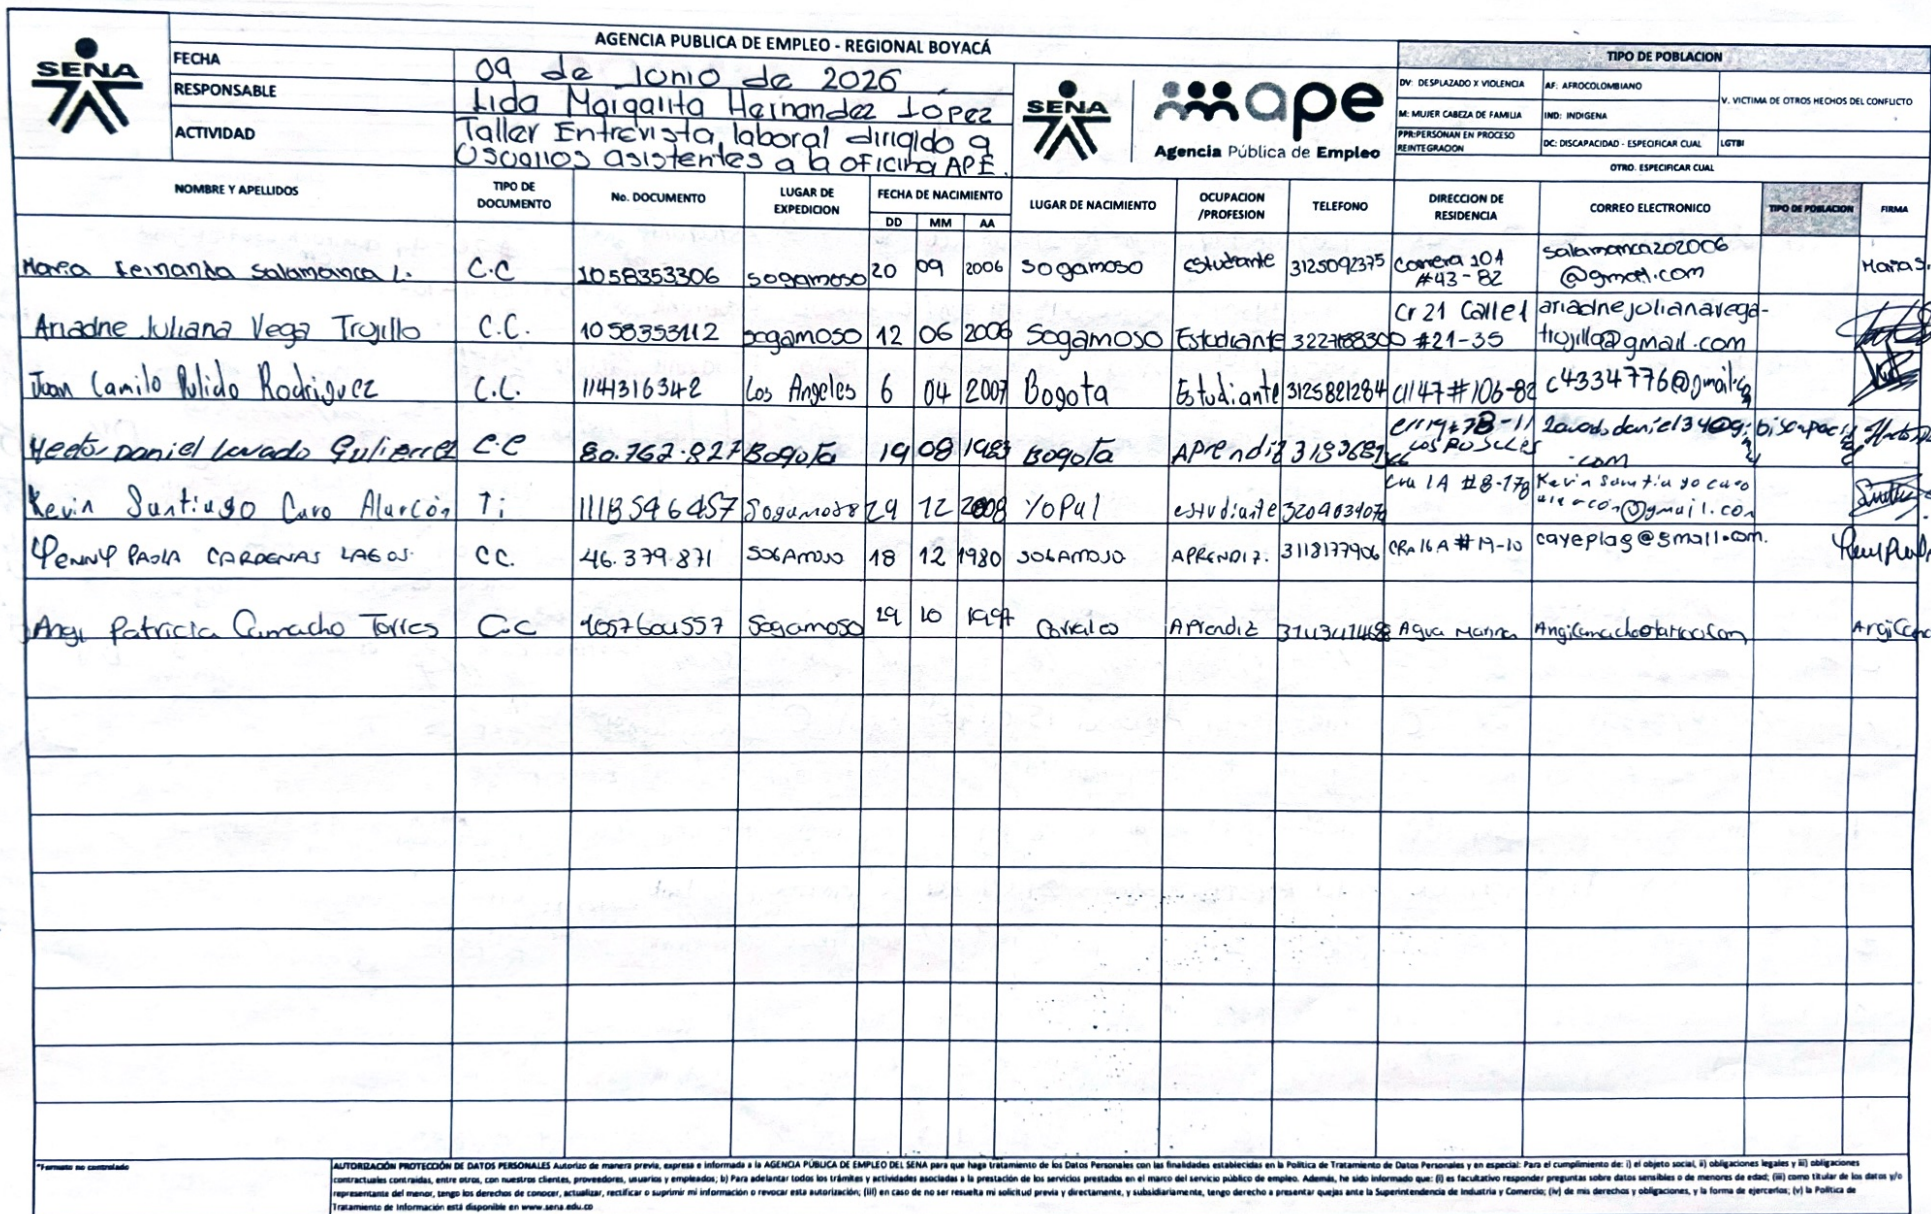 AGENCIA PUBLICA DE EMPLEO - REGIONAL BOYACÁ
SENA
FECHA 09 de Junio de 2026
RESPONSABLE Lida Margarita Hernandez López
ACTIVIDAD Taller Entrevista laboral dirigido a
Usuarios asistentes a la oficina APE.
SENA
ape
Agencia Pública de Empleo
TIPO DE POBLACION
DV: DESPLAZADO X VIOLENCIA AF: AFROCOLOMBIANO V. VICTIMA DE OTROS HECHOS DEL CONFLICTO
M: MUJER CABEZA DE FAMILIA IND: INDIGENA
PPR:PERSONAN EN PROCESO REINTEGRACION DC: DISCAPACIDAD - ESPECIFICAR CUAL LGTBI
OTRO. ESPECIFICAR CUAL
NOMBRE Y APELLIDOS TIPO DE DOCUMENTO No. DOCUMENTO LUGAR DE EXPEDICION FECHA DE NACIMIENTO LUGAR DE NACIMIENTO OCUPACION /PROFESION TELEFONO DIRECCION DE RESIDENCIA CORREO ELECTRONICO TIPO DE POBLACION FIRMA
DD MM AA
Maria Fernanda Salamanca L. C.C 1058353306 sogamoso 20 09 2006 sogamoso estudiante 3125092375 Carrera 10A #43-82 salamanca202006@gmail.com Maria S.
Ariadne Juliana Vega Trujillo C.C. 1058353112 sogamoso 12 06 2006 Sogamoso Estudiante 3227188300 Cr 21 Calle1 #21-35 ariadnejulianavega-trujillo@gmail.com
Juan Camilo Pulido Rodriguez C.C. 1141316342 Los Angeles 6 04 2007 Bogota Estudiante 3125821284 Cl 47 #106-82 c4334776@gmail
Hector Daniel Lavado Gutierrez C.C 80.762.827 Bogota 19 08 1983 Bogota Aprendiz
Kevin Santiago Caro Alarcón Ti 1118546457 Sogamoso 29 12 2008 Yopal estudiante Cra 1A #8-178 Kevin Santiago caro alarcon@gmail.com
Yenny PAOLA CARDENAS LAGOS. CC. 46.379.871 SOGAMOSO 18 12 1980 SOGAMOSO APRENDIZ. 3118177906 CRA 16A #19-10 cayeplag@gmail.com.
Angi Patricia Camacho Torres C.C 1057604557 Sogamoso 29 10 Corrales Aprendiz Agua Marina
*Formato no controlado
AUTORIZACIÓN PROTECCIÓN DE DATOS PERSONALES Autorizo de manera previa, expresa e informada a la AGENCIA PÚBLICA DE EMPLEO DEL SENA para que haga tratamiento de los Datos Personales con las finalidades establecidas en la Política de Tratamiento de Datos Personales y en especial: Para el cumplimiento de: i) el objeto social, ii) obligaciones legales y iii) obligaciones
contractuales contraidas, entre otros, con nuestros clientes, proveedores, usuarios y empleados; b) Para adelantar todos los trámites y actividades asociadas a la prestación de los servicios prestados en el marco del servicio público de empleo. Además, he sido informado que: (i) es facultativo responder preguntas sobre datos sensibles o de menores de edad; (ii) como titular de los datos y/o
representante del menor, tengo los derechos de conocer, actualizar, rectificar o suprimir mi información o revocar esta autorización; (iii) en caso de no ser resuelta mi solicitud previa y directamente, y subsidiariamente, tengo derecho a presentar quejas ante la Superintendencia de Industria y Comercio; (iv) de mis derechos y obligaciones, y la forma de ejercerlos; (v) la Política de
Tratamiento de Información está disponible en www.sena.edu.co